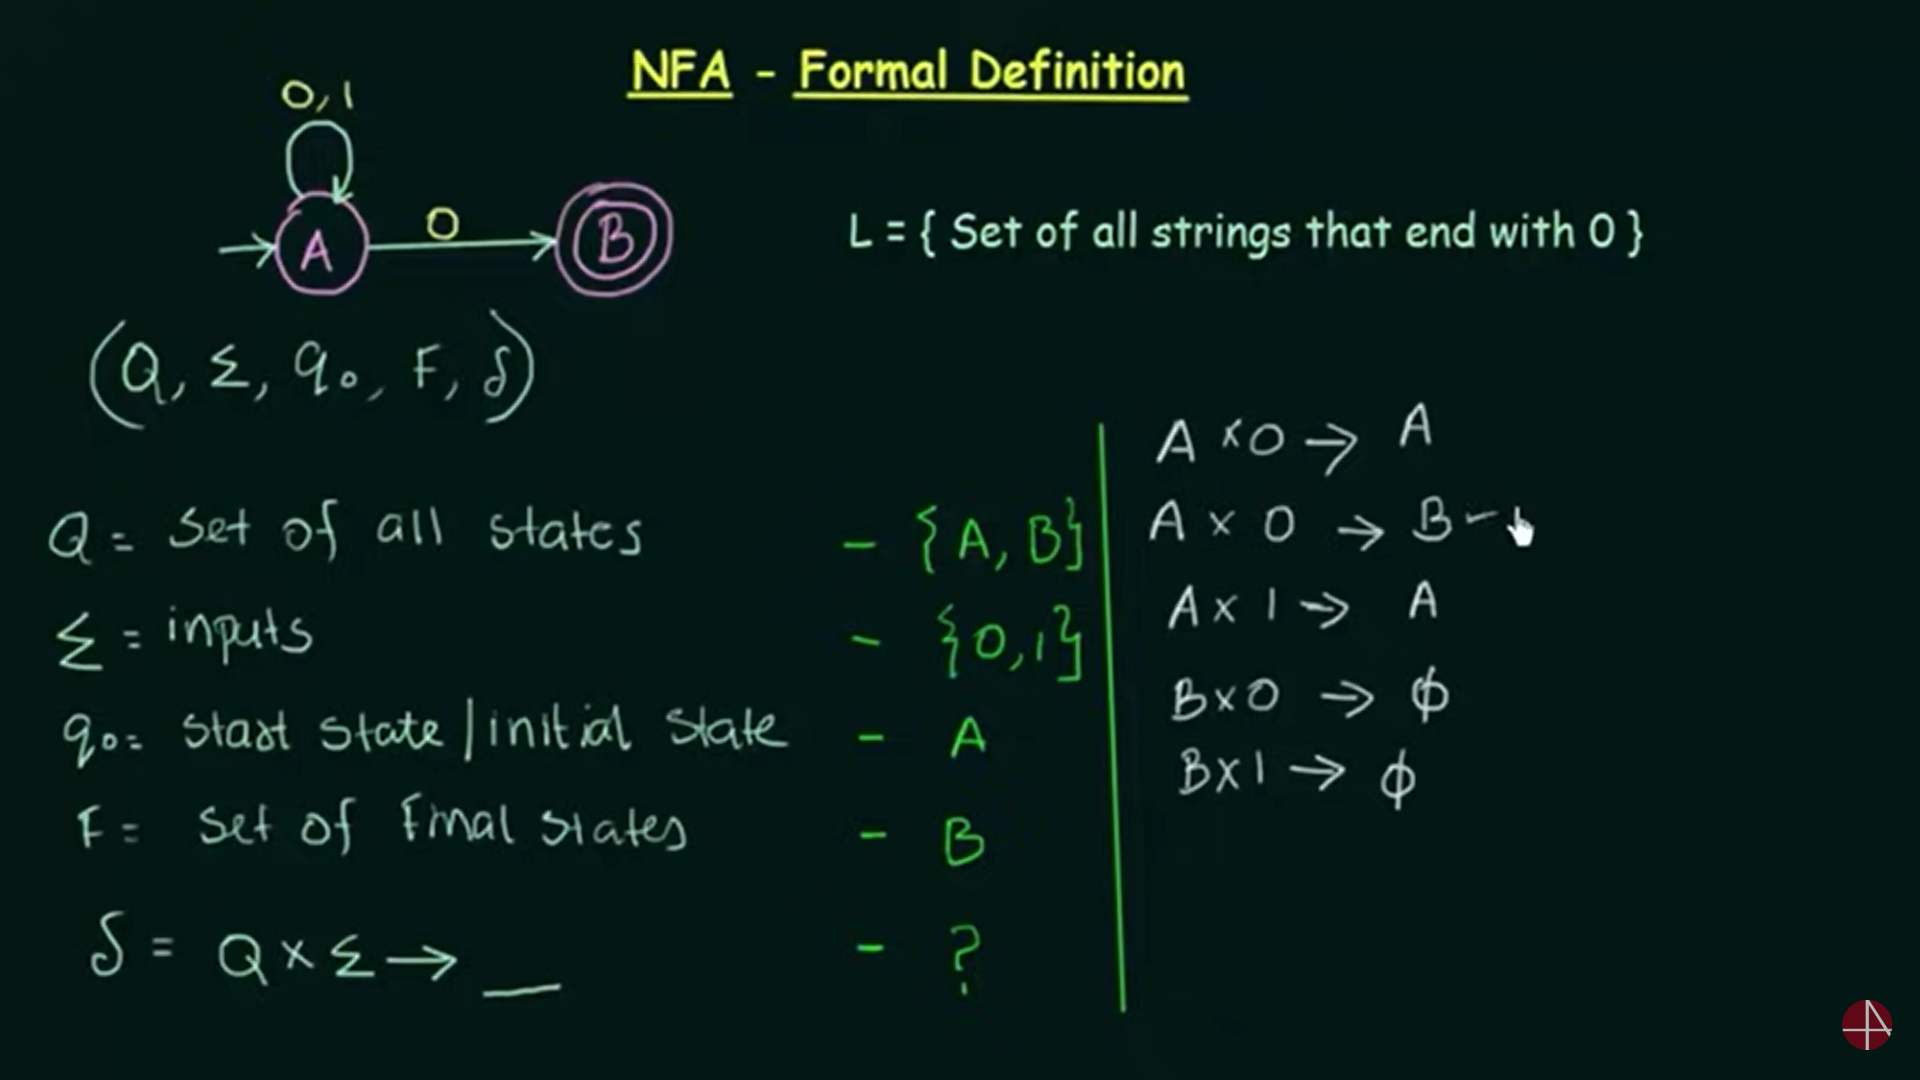 NFA - Formal Definition
0, 1
A 0 B
L = { Set of all strings that end with 0 }
(Q, Σ, q₀, F, δ)
Q = Set of all states - {A, B}
Σ = inputs - {0, 1}
q₀ = start state / initial state - A
F = set of final states - B
δ = Q × Σ → __ - ?
A × 0 → A
A × 0 → B -
A × 1 → A
B × 0 → ϕ
B × 1 → ϕ